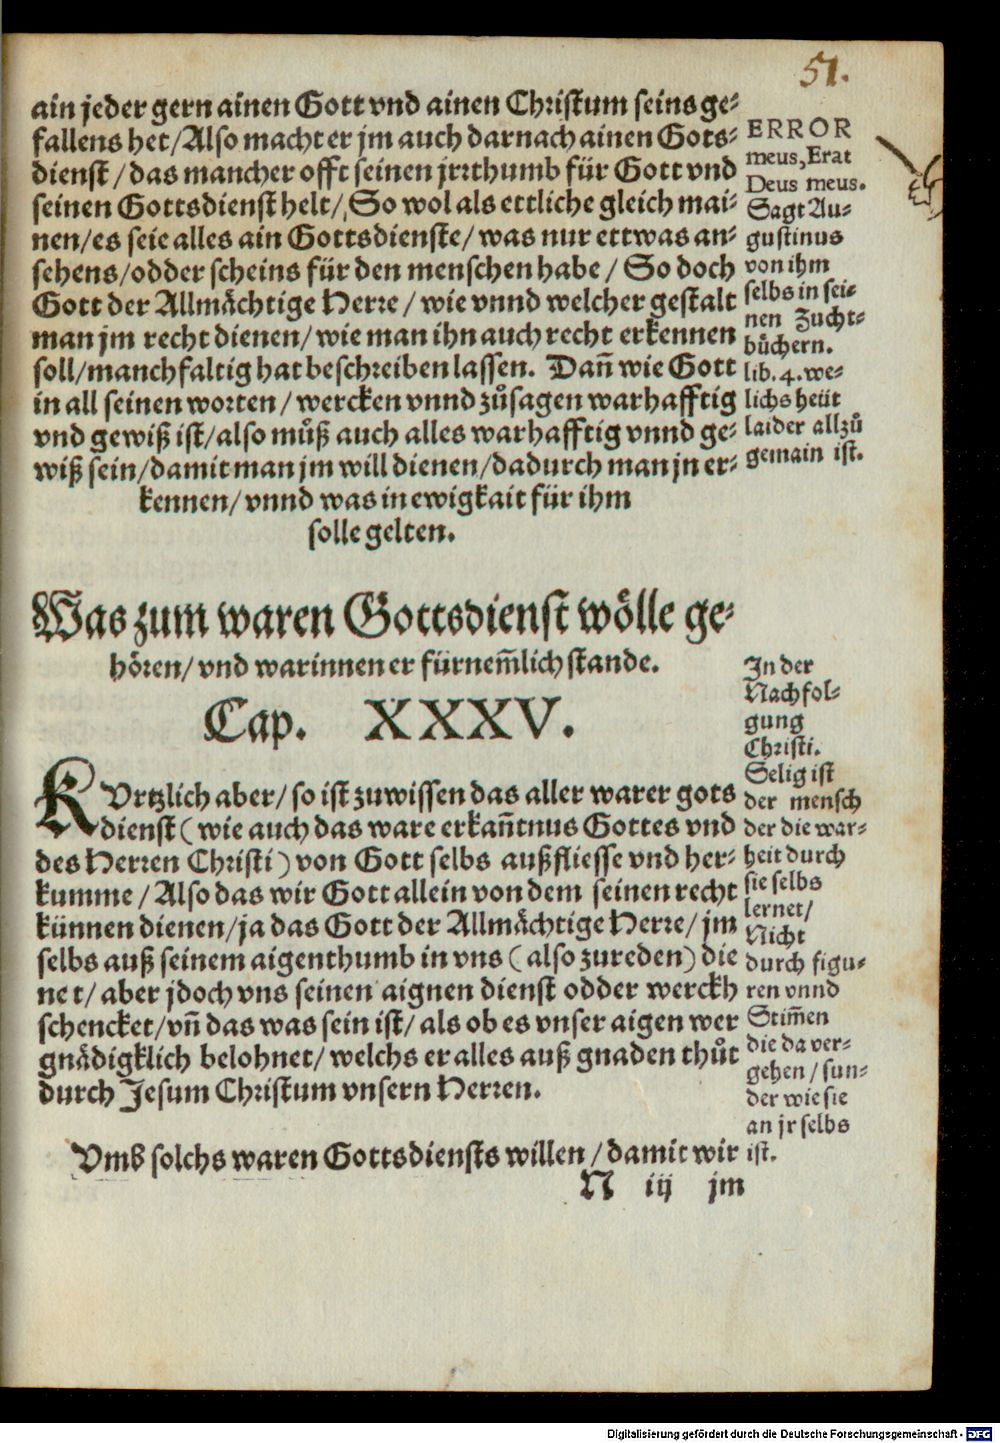 51.
ain jeder gern ainen Gott vnd ainen Christum seins ge-
fallens het/Also macht er jm auch darnach ainen Gots-
dienst/das mancher offt seinen jrrthumb für Gott vnd
seinen Gottsdienst helt/So wol als ettliche gleich mai-
nen/es seie alles ain Gottsdienste/was nur ettwas an-
sehens/odder scheins für den menschen habe/So doch
Gott der Allmåchtige Herre/wie vnnd welcher gestalt
man jm recht dienen/wie man ihn auch recht erkennen
soll/manchfaltig hat beschreiben lassen. Dañ wie Gott
in all seinen worten/wercken vnnd zůsagen warhafftig
vnd gewiß ist/also můß auch alles warhafftig vnnd ge-
wiß sein/damit man jm will dienen/dadurch man jn er-
kennen/vnnd was in ewigkait für ihm
solle gelten.
ERROR
meus, Erat
Deus meus.
Sagt Au-
gustinus
von ihm
selbs in sei-
nen Zucht-
bůchern.
lib. 4. we-
lichs heüt
laider allzů
gemain ist.
Was zum waren Gottsdienst wölle ge-
hören/vnd warinnen er fürnem̃lich stande.
Cap. XXXV.
KVrtzlich aber/so ist zuwissen das aller warer gots
dienst (wie auch das ware erkañtnus Gottes vnd
des Herren Christi) von Gott selbs außfliesse vnd her-
kumme/Also das wir Gott allein von dem seinen recht
künnen dienen/ja das Gott der Allmåchtige Herre/jm
selbs auß seinem aigenthumb in vns (also zureden) die
net/aber jdoch vns seinen aignen dienst odder werckh
schencket/vñ das was sein ist/als ob es vnser aigen wer
gnådigklich belohnet/welchs er alles auß gnaden thůt
durch Jesum Christum vnsern Herren.
Vmb solchs waren Gottsdiensts willen/damit wir
N iij jm
In der
Nachfol-
gung
Christi.
Selig ist
der mensch
der die war-
heit durch
sie selbs
lernet/
Nicht
durch figu-
ren vnnd
Stim̃en
die da ver-
gehen/sun-
der wie sie
an jr selbs
ist.
Digitalisierung gefördert durch die Deutsche Forschungsgemeinschaft - DFG